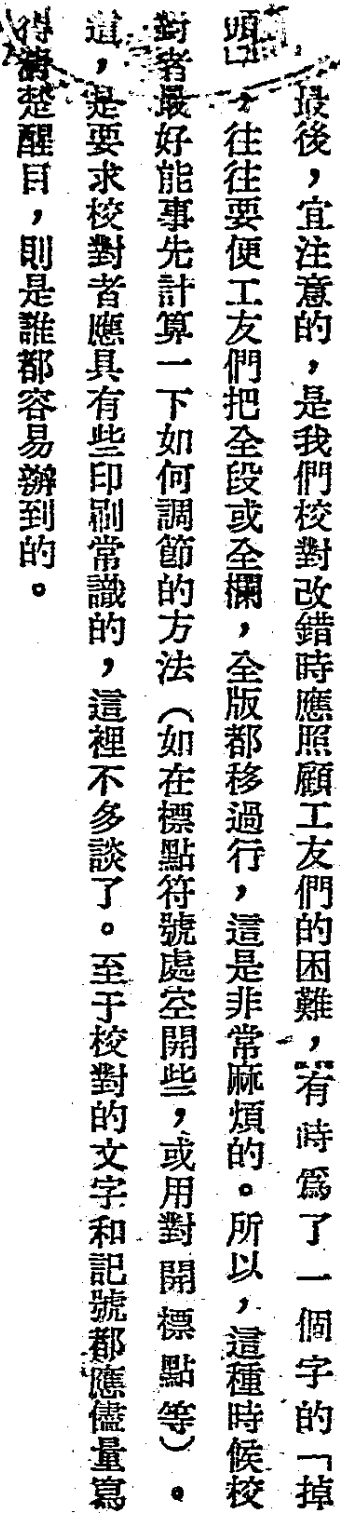 最後，宜注意的，是我們校對改錯時應照顧工友們的困難，有時爲了一個字的「掉
頭」，往往要便工友們把全段或全欄，全版都移過行，這是非常麻煩的。所以，這種時候校
對者最好能事先計算一下如何調節的方法（如在標點符號處空開些，或用對開標點等）。
道，是要求校對者應具有些印刷常識的，這裡不多談了。至于校對的文字和記號都應儘量寫
得清楚醒目，則是誰都容易辦到的。